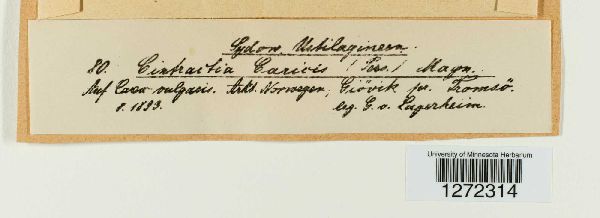 Sydow Ustilagineen.
80. Cintractia Caricis (Pers.) Magn.
Auf Carex vulgaris. Arkt. Norwegen, Giövik pr. Tromsö.
8. 1893. leg. G. v. Lagerheim.
University of Minnesota Herbarium
1272314